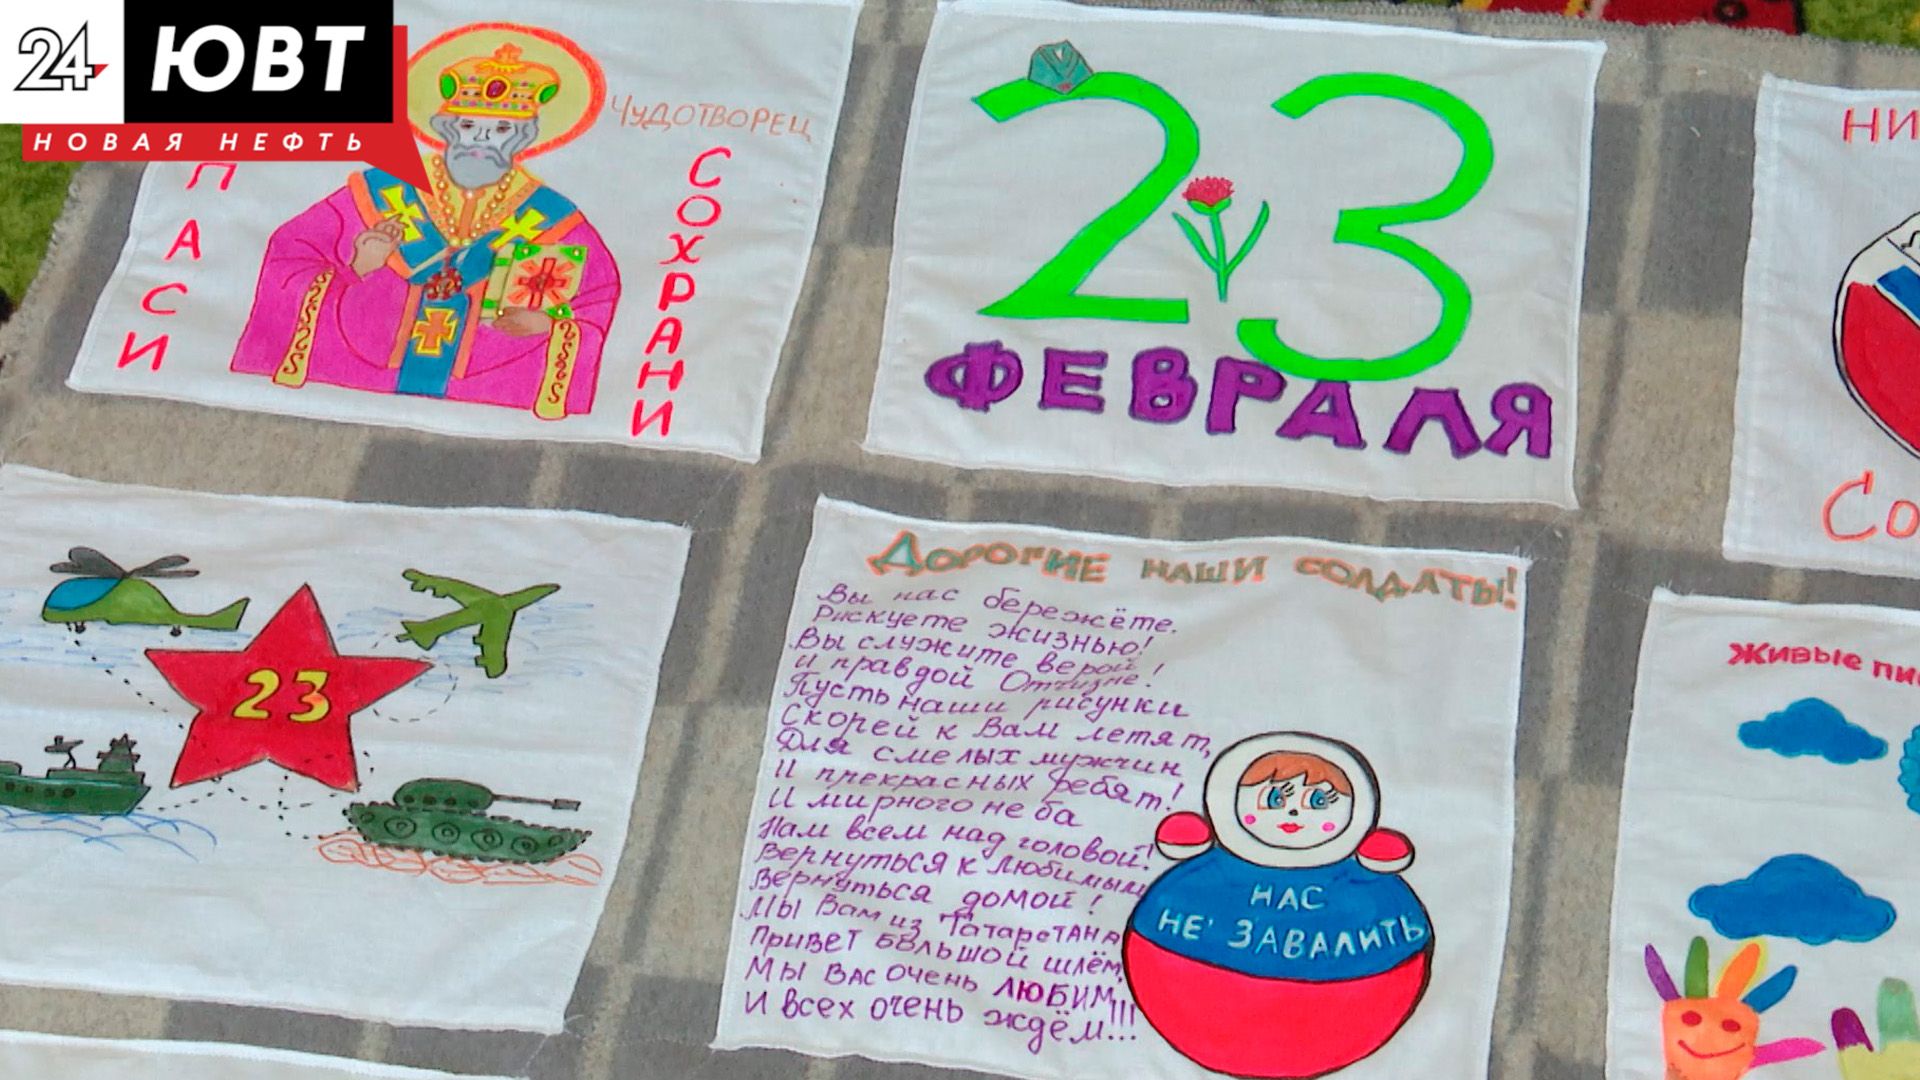 24 ЮВТ
НОВАЯ НЕФТЬ
ЧУДОТВОРЕЦ
ПАСИ
СОХРАНИ
23
ФЕВРАЛЯ
НИ
Со
23
Дорогие наши солдаты!
Вы нас бережёте.
Рискуете жизнью!
Вы служите верой!
И правдой Отчизне!
Пусть наши рисунки
Скорей к Вам летят,
Для смелых мужчин
И прекрасных ребят!
И мирного неба
Нам всем над головой!
Вернуться к любимым
Вернуться домой!
Мы Вам из Татарстана
Привет большой шлём,
Мы Вас очень ЛЮБИМ,
И всех очень ждём!!!
НАС
НЕ ЗАВАЛИТЬ
Живые пи